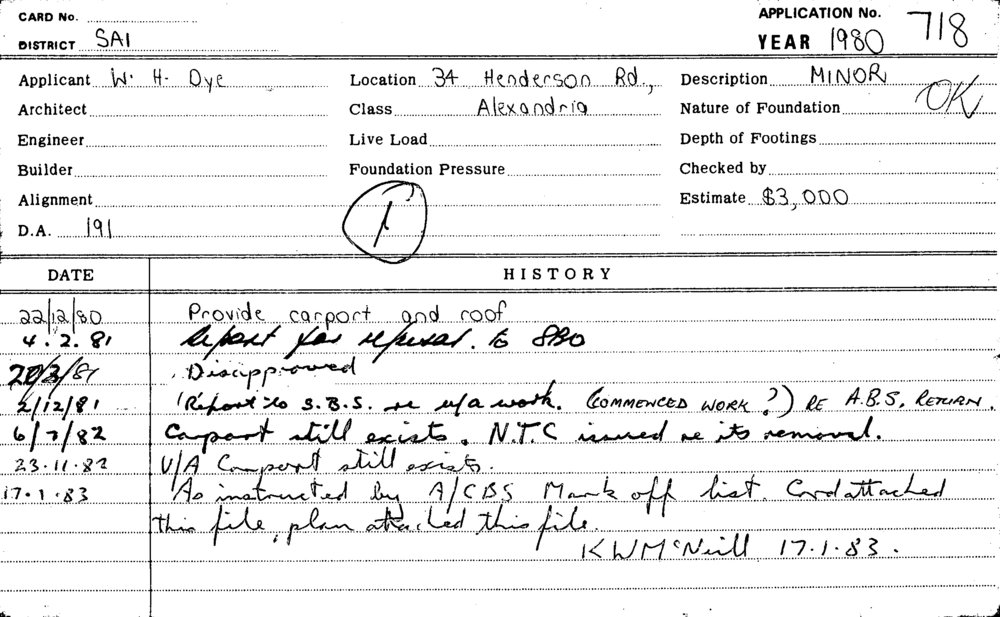 CARD No.
APPLICATION No. 718
DISTRICT SAI
YEAR 1980
Applicant W. H. Dye Location 34 Henderson Rd., Description MINOR
Architect Class Alexandria Nature of Foundation OK
Engineer Live Load Depth of Footings
Builder Foundation Pressure Checked by
Alignment Estimate $3,000
D.A. 191
1
DATE HISTORY
22/12/80 Provide carport and roof
4.2.81 Report for refusal. to SBO
20/3/81 Disapproved
2/12/81 (Report to S.B.S. re u/a work. (COMMENCED WORK ?) RE A.B.S. RETURN.
6/7/82 Carport still exists. N.T.C issued re its removal.
23.11.82 U/A Carport still exists.
17.1.83 As instructed by A/CBS Mark off list. Card attached
this file, plan attached this file.
KWMcNeill 17.1.83.